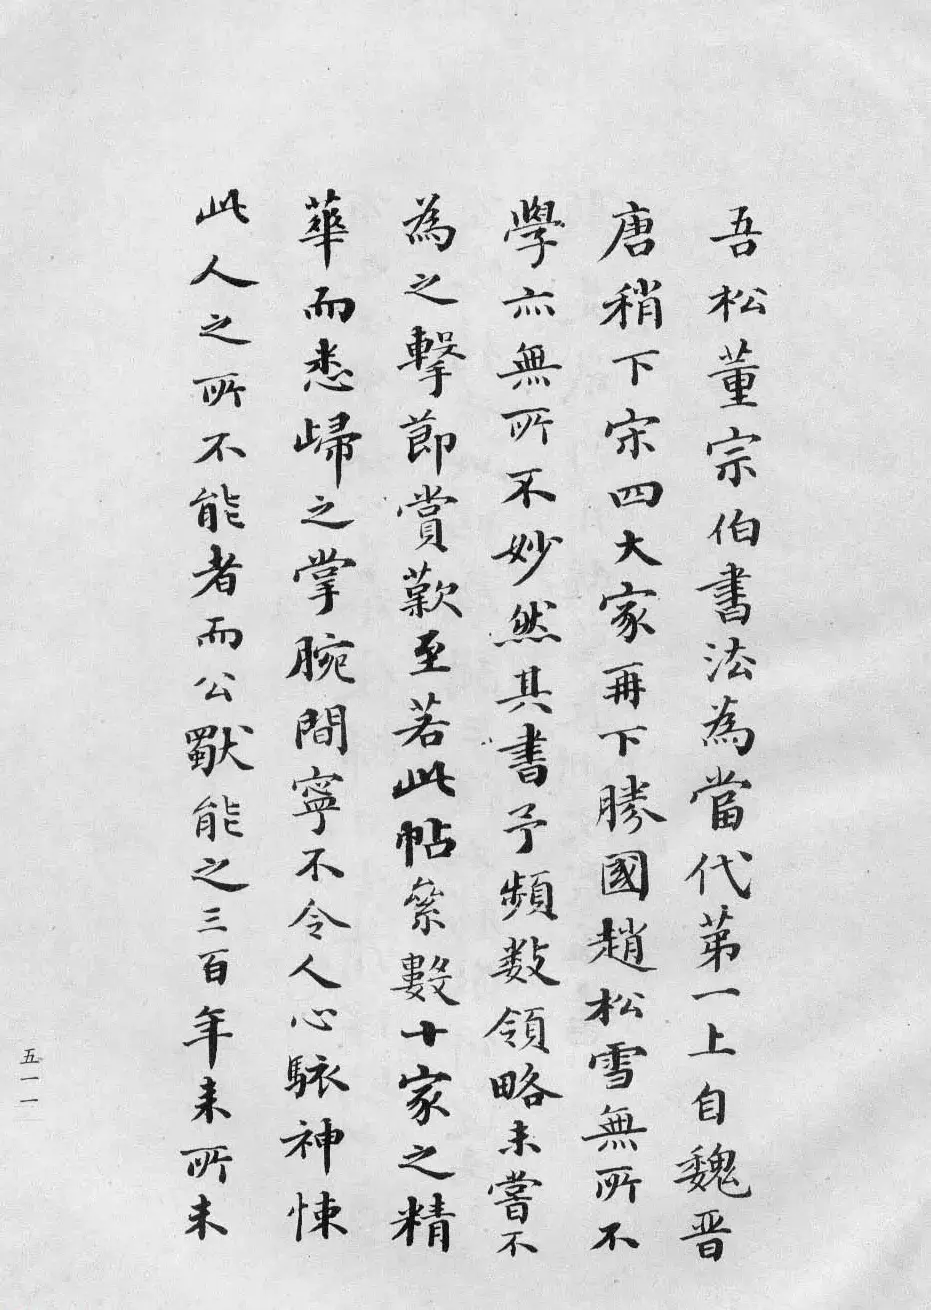 吾松董宗伯書法為當代第一上自魏晋
唐稍下宋四大家再下勝國趙松雪無所不
學亦無所不妙然其書予頻数領略未嘗不
為之擊節賞歎至若此帖綜數十家之精
華而悉歸之掌腕間寧不令人心駭神悚
此人之所不能者而公獸能之三百年来所未
五一一